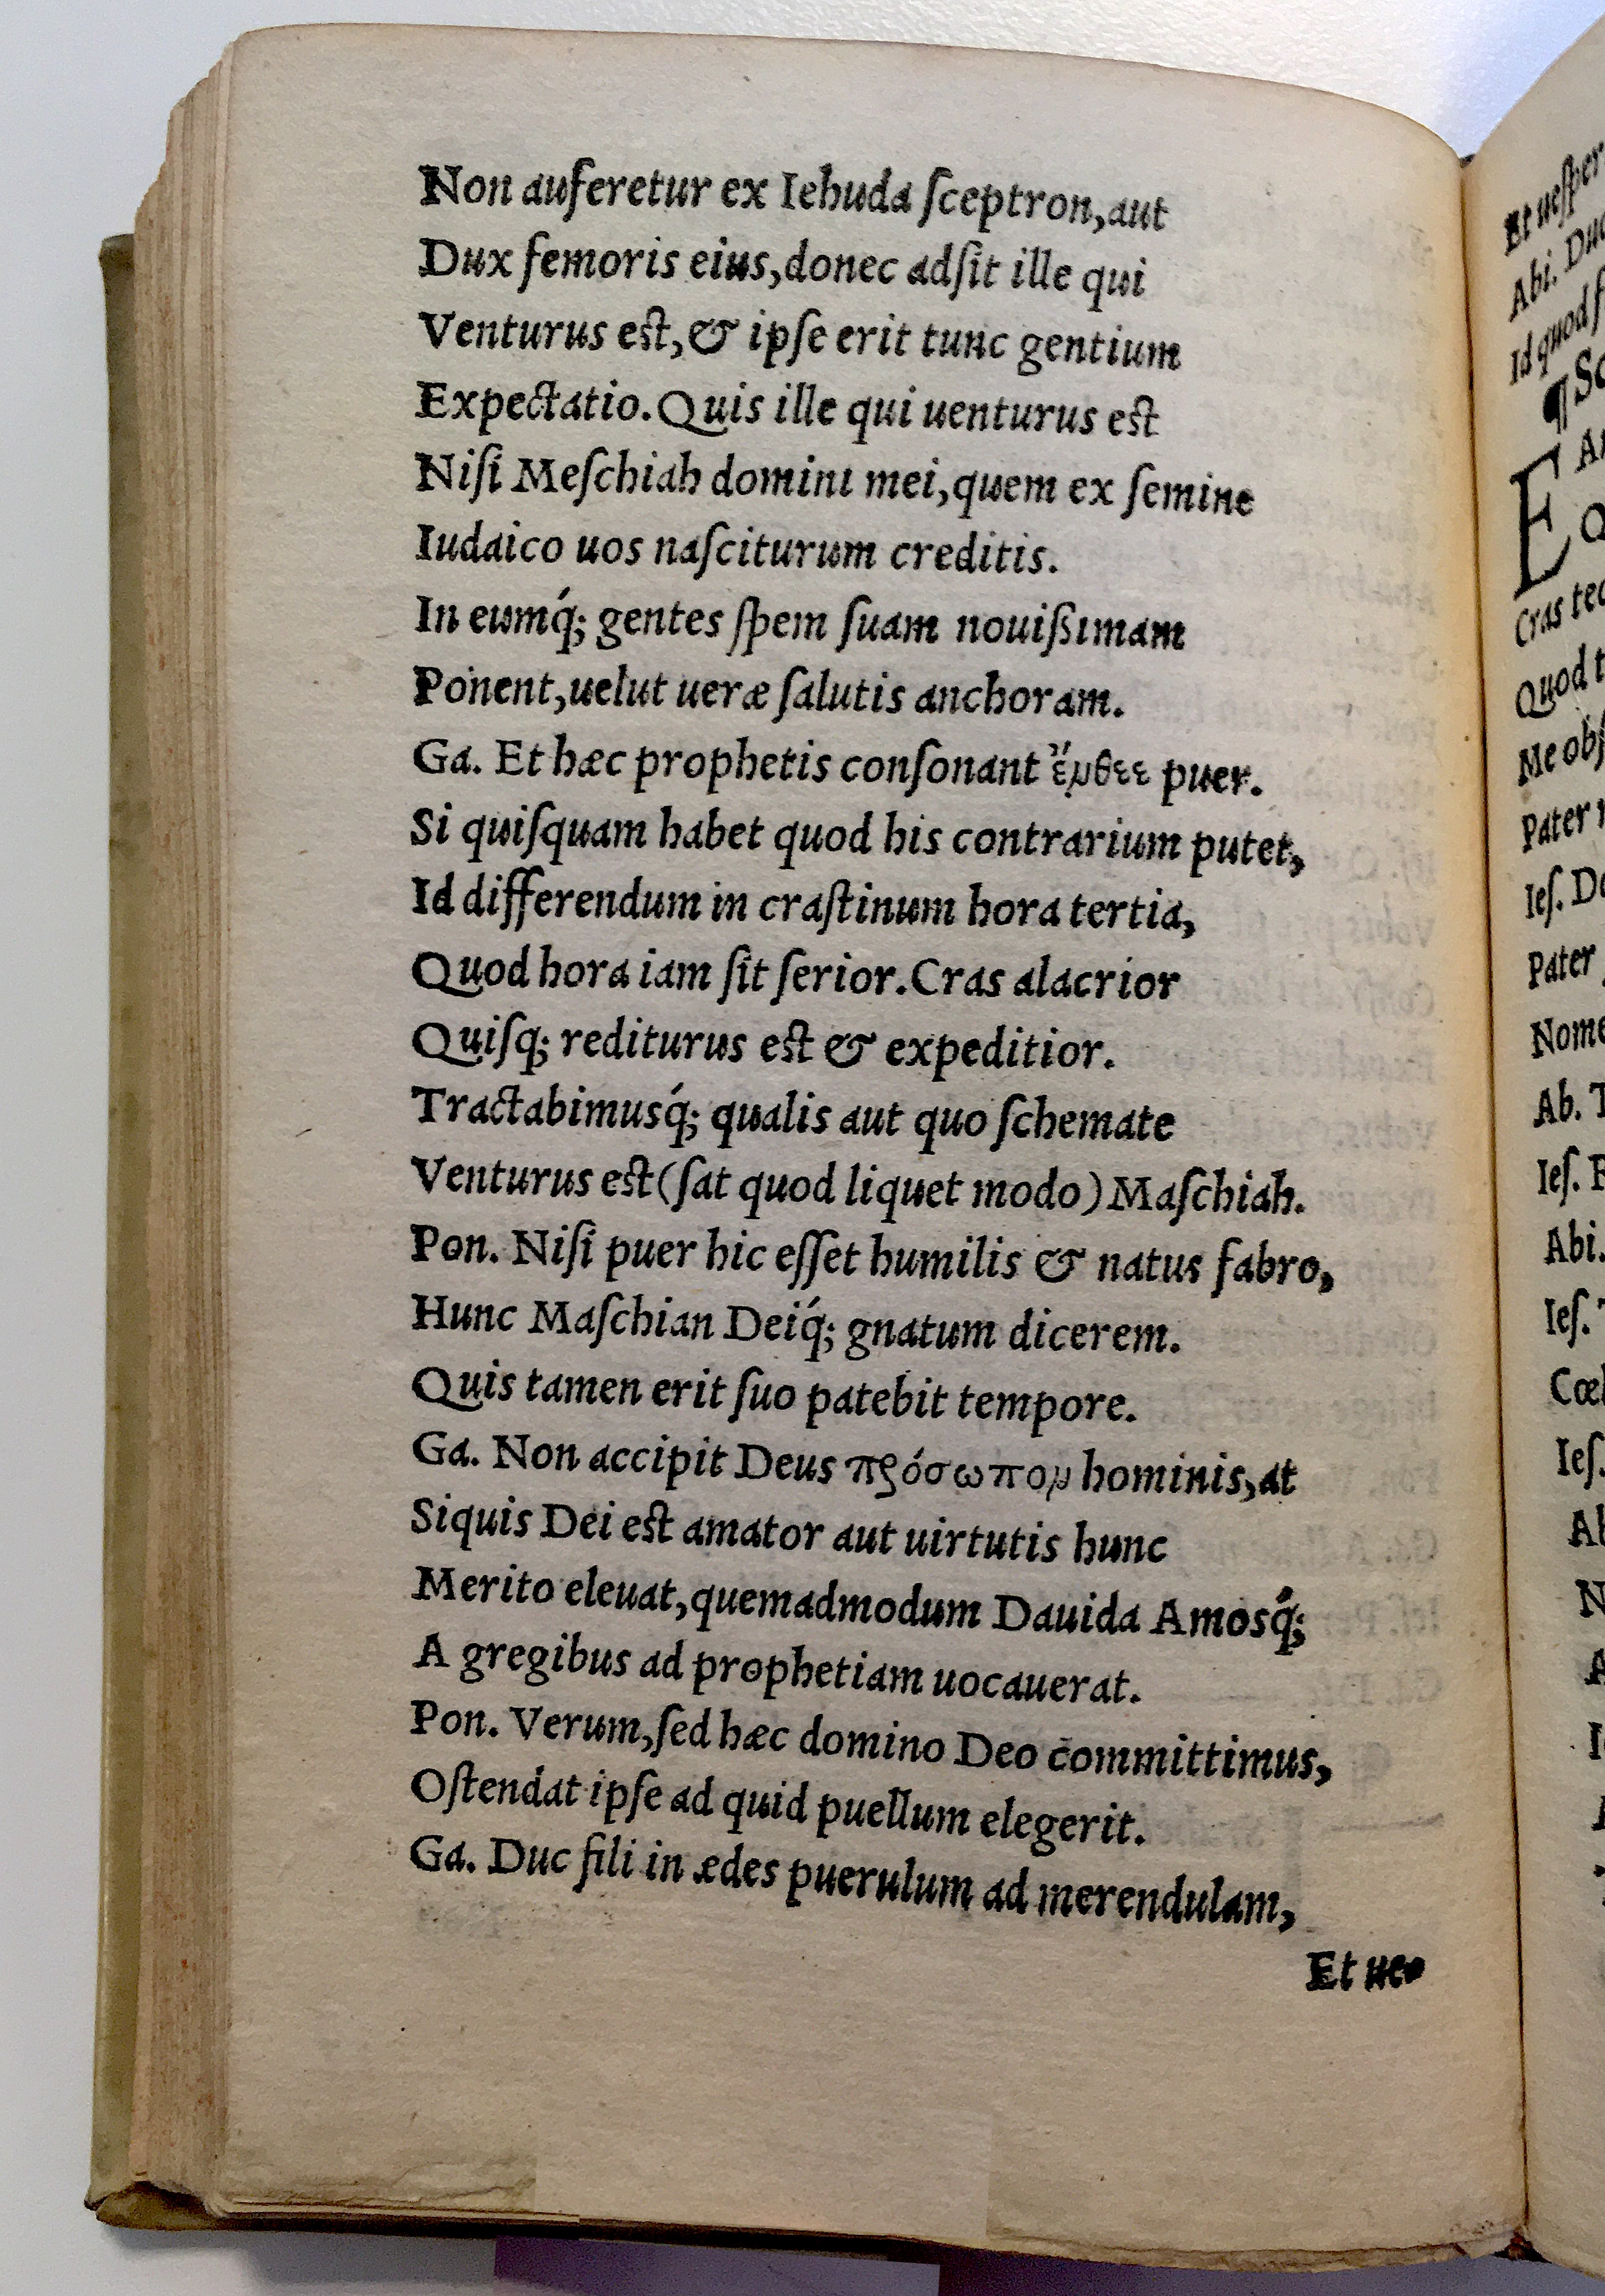 Non auferetur ex Iehuda ſceptron,aut
Dux femoris eius,donec adſit ille qui
Venturus est,& ipſe erit tunc gentium
Expectatio.Quis ille qui uenturus est
Niſi Meſchiah domini mei,quem ex ſemine
Iudaico uos naſciturum creditis.
In eumq́; gentes ſpem ſuam nouißimam
Ponent,uelut ueræ ſalutis anchoram.
Ga. Et hæc prophetis conſonant ἔνθεε puer.
Si quiſquam habet quod his contrarium putet,
Id differendum in craſtinum hora tertia,
Quod hora iam ſit ſerior.Cras alacrior
Quiſq; rediturus est & expeditior.
Tractabimusq́; qualis aut quo ſchemate
Venturus est(ſat quod liquet modo)Maſchiah.
Pon. Niſi puer hic eſſet humilis & natus fabro,
Hunc Maſchian Deiq́; gnatum dicerem.
Quis tamen erit ſuo patebit tempore.
Ga. Non accipit Deus πρόσωπον hominis,at
Siquis Dei est amator aut uirtutis hunc
Merito eleuat,quemadmodum Dauida Amosq́;
A gregibus ad prophetiam uocauerat.
Pon. Verum,ſed hæc domino Deo committimus,
Oſtendat ipſe ad quid puellum elegerit.
Ga. Duc fili in ædes puerulum ad merendulam,
Et ue
Et ueſper
Abi. Duc
Id quod
¶ Sc
E
Q
Cras tec
Quod t
Me obſ
Pater
Ieſ. De
Pater
Nome
Ab. T
Ieſ.
Abi.
Ieſ.
Cœl
Ieſ.